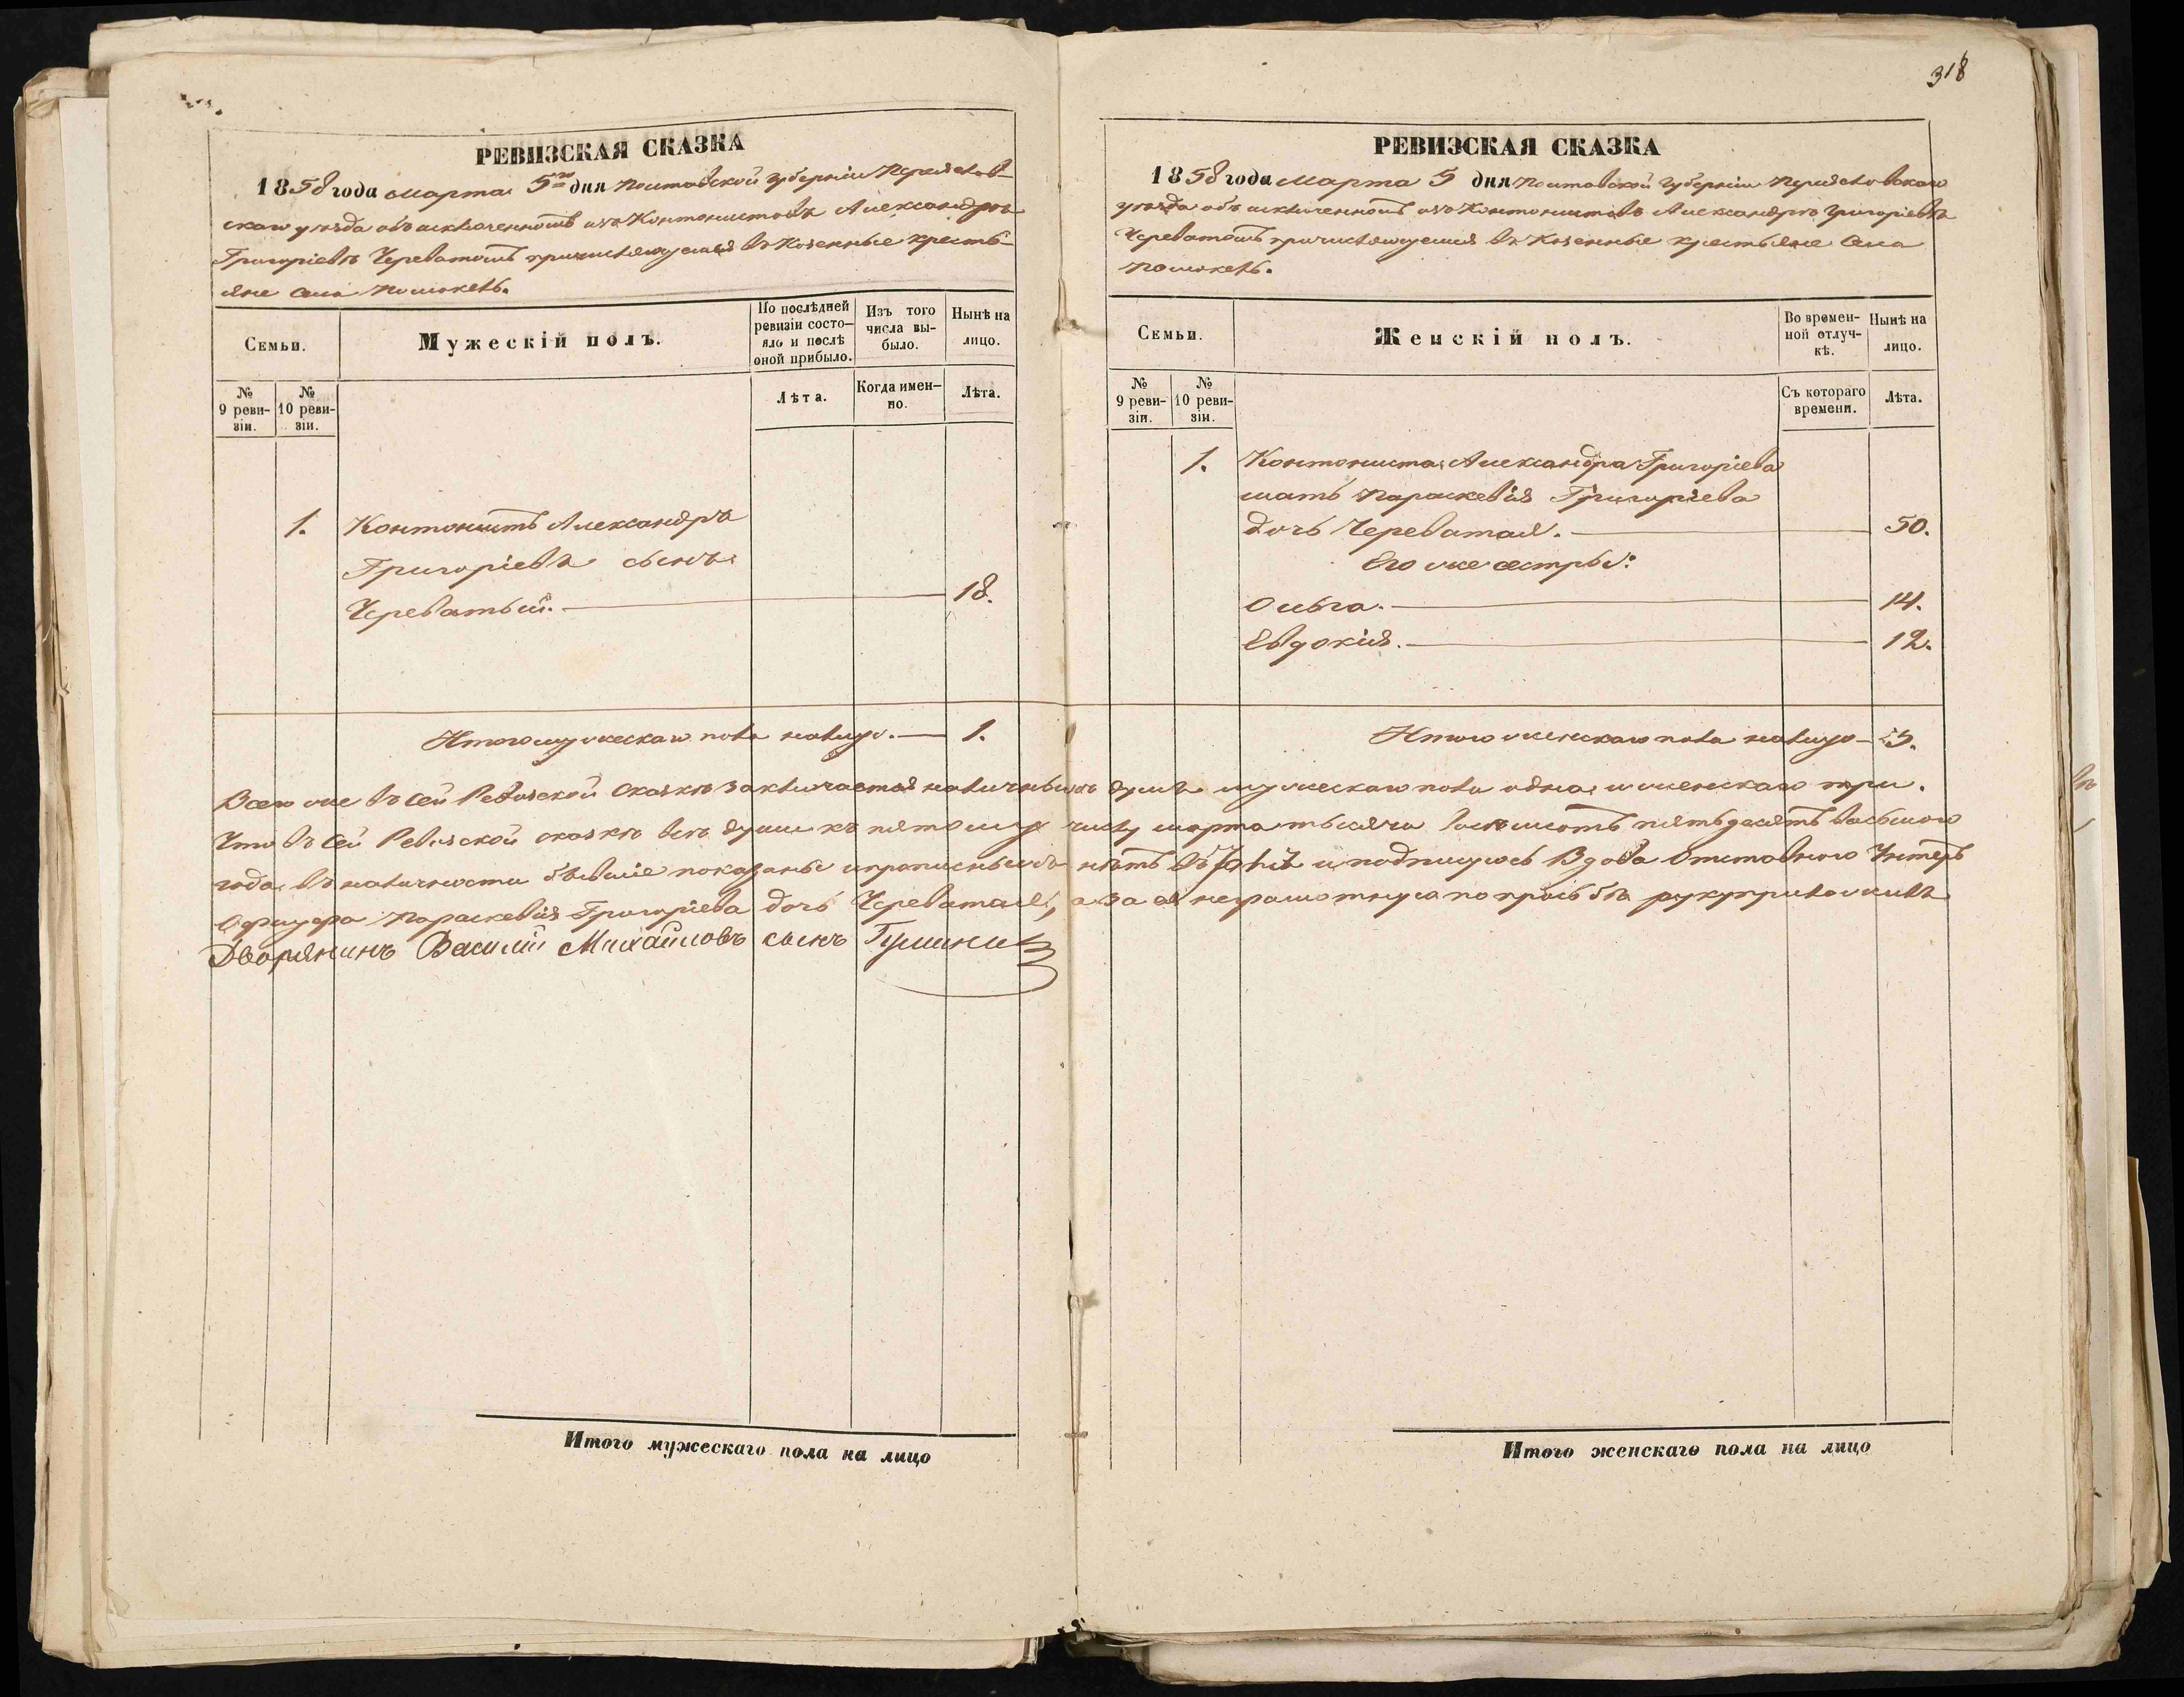 318
РЕВИЗСКАЯ СКАЗКА
1858 года марта 5го дня Полтавской губерніи Переяслов-
скаго уѣзда объ исключенномъ изъ Контонистовъ Александрѣ
Григоріевѣ Череватомъ причисляющемся въ Козенные крестья-
яне села Помокель.
Семьи.
Мужескій полъ.
По послѣдней ревизіи состо-
яло и послѣ оной прибыло.
Изъ того числа вы-
было.
Нынѣ на лицо.
№ 9 реви-
зіи.
№ 10 реви-
зіи.
Лѣта.
Когда имен-
но.
Лѣта.
1. Контонистъ Александръ
Григоріевъ сынъ
Череватый. — 18.
Итого мужескаго пола налицо. — 1.
РЕВИЗСКАЯ СКАЗКА
1858 года марта 5 дня Полтавской Губерніи Переясловскаго
уѣзда объ исключенномъ изъ Контонистовъ Александрѣ Григоріевѣ
Череватомъ причисляющемся въ Козенные крестьяне села
Помокель.
Семьи.
Женскій полъ.
Во времен-
ной отлуч-
кѣ.
Нынѣ на лицо.
№ 9 реви-
зіи.
№ 10 реви-
зіи.
Съ котораго времени.
Лѣта.
1. Контониста Александра Григоріева
мать Параскевія Григоріева
дочь Череватая. — 50.
Его же сестры:
Ольга. — 14.
Евдокія. — 12.
Итого женскаго пола налицо — 3.
Всего же въ сей Ревизской сказкѣ заключается наличныхъ душъ мужескаго пола одна и женскаго три.
Что въ сей Ревизской сказкѣ всѣ души къ пятому числу марта тысяча восемсотъ пятьдесятъ васьмого
года въ наличности бывшіе показаны и прописныхъ нѣтъ въ и подпишуюсь Вдова Отставного Унтеръ
Офицера Параскевія Григоріева дочь Череватая, а за ея неграмотную по прозьбѣ руку приложилъ
Дворянинъ Василій Михайловъ сынъ
Итого мужескаго пола на лицо
Итого женскаго пола на лицо